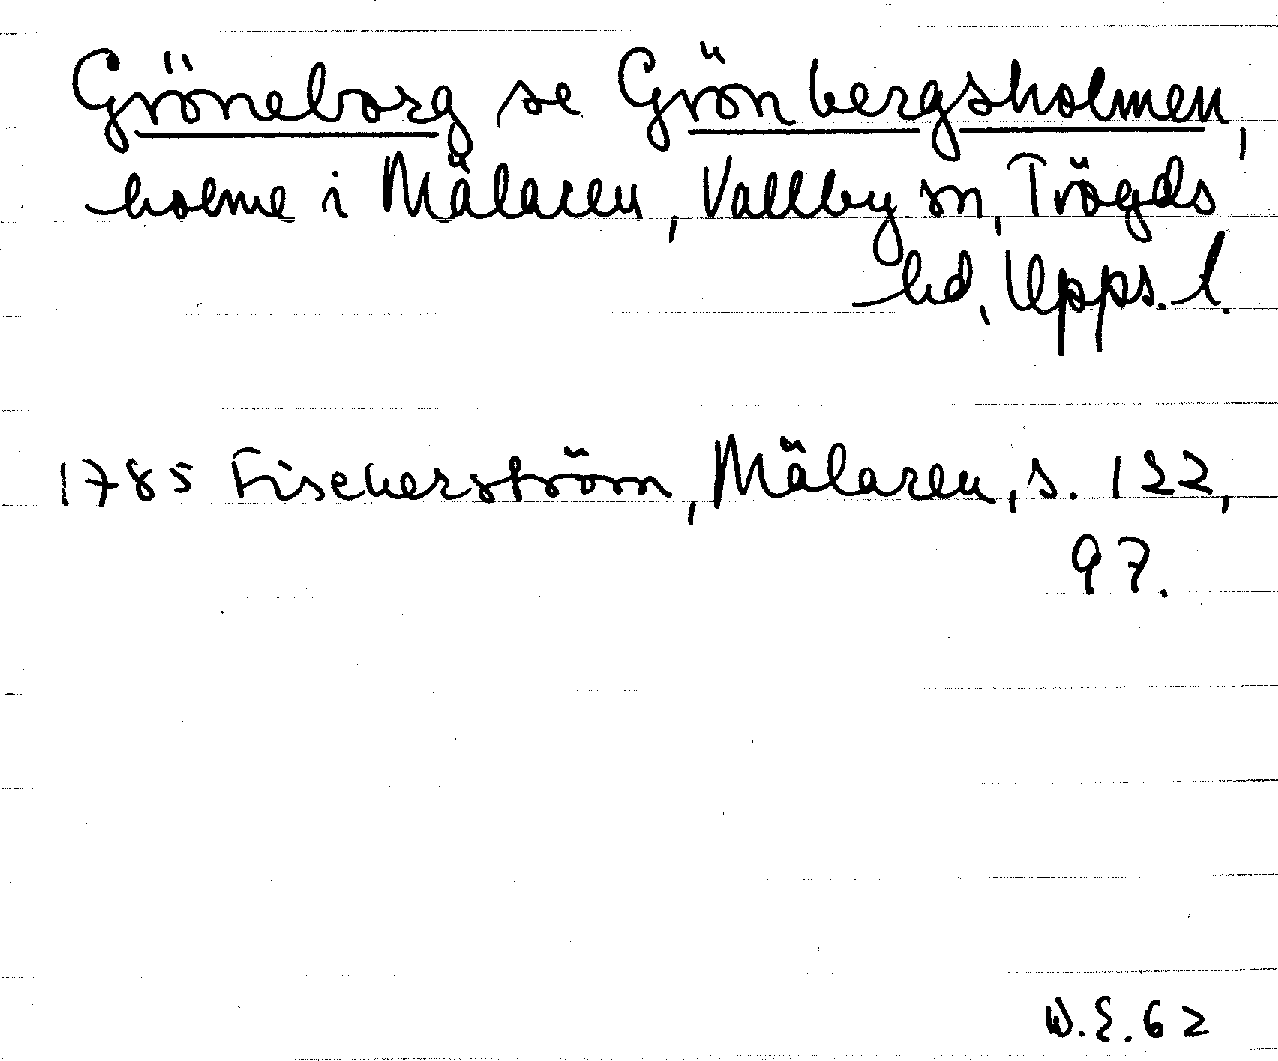 Gröneborg se Grönbergsholmen,
holme i Mälaren, Vallby sn, Trögds
hd, Upps. l.
1785 Fischerström, Mälaren, s. 122,
97.
W.E. 62